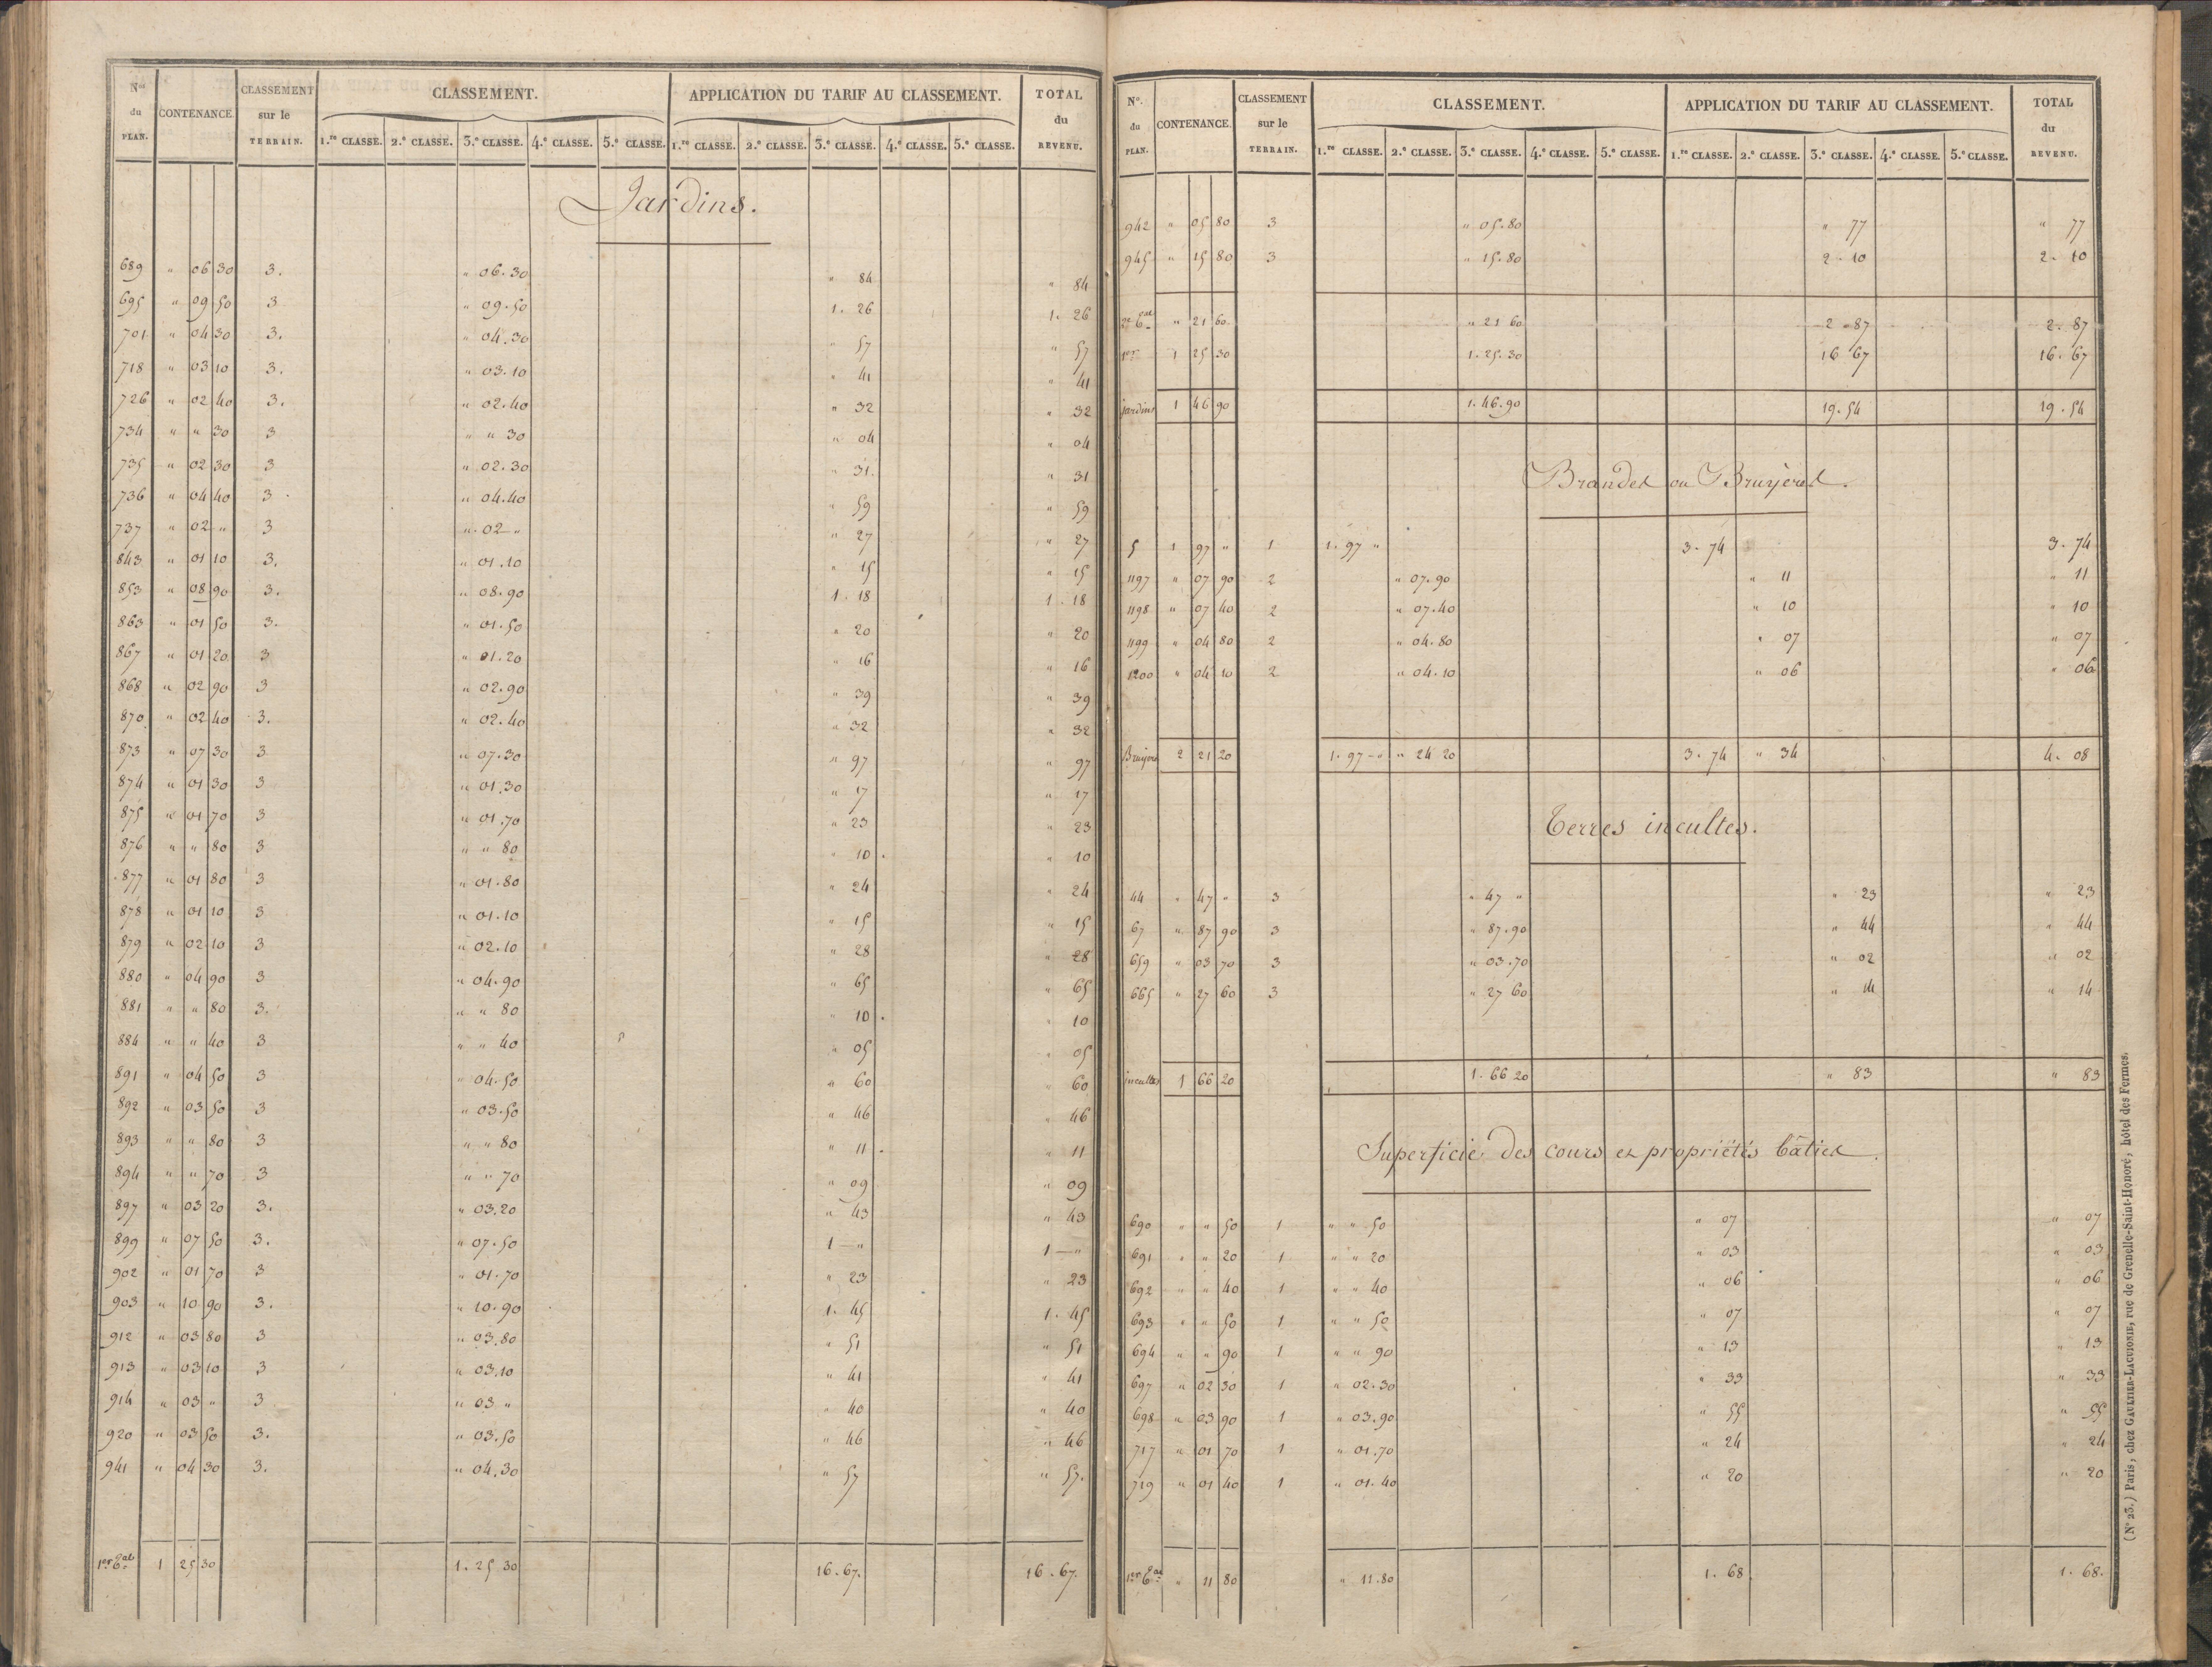 Nos du PLAN. CONTENANCE. CLASSEMENT sur le TERRAIN. CLASSEMENT. APPLICATION DU TARIF AU CLASSEMENT. TOTAL du REVENU.
1.re CLASSE. 2.e CLASSE. 3.e CLASSE. 4.e CLASSE. 5.e CLASSE. 1.re CLASSE. 2.e CLASSE. 3.e CLASSE. 4.e CLASSE. 5.e CLASSE.
Jardins.
689 " 06 30 3. " 06.30 " 84 " 84
695 " 09 50 3 " 09.50 1. 26 1. 26
701 " 04 30 3. " 04.30 " 57 " 57
718 " 03 10 3. " 03.10 " 41 " 41
726 " 02 40 3. " 02.40 " 32 " 32
734 " " 30 3 " " 30 " 04 " 04
735 " 02 30 3 " 02.30 " 31. " 31
736 " 04 40 3 " 04.40 " 59 " 59
737 " 02 " 3 " 02 " " 27 " 27
843 " 01 10 3. " 01.10 " 15 " 15
853 " 08 90 3. " 08.90 1. 18 1. 18
863 " 01 50 3. " 01.50 " 20 " 20
867 " 01 20 3 " 01.20 " 16 " 16
868 " 02 90 3 " 02.90 " 39 " 39
870 " 02 40 3. " 02.40 " 32 " 32
873 " 07 30 3 " 07.30 " 97 " 97
874 " 01 30 3 " 01.30 " 17 " 17
875 " 01 70 3 " 01.70 " 23 " 23
876 " " 80 3 " " 80 " 10. " 10
877 " 01 80 3 " 01.80 " 24 " 24
878 " 01 10 3 " 01.10 " 15 " 15
879 " 02 10 3 " 02.10 " 28 " 28
880 " 04 90 3 " 04.90 " 65 " 65
881 " " 80 3. " " 80 " 10. " 10
884 " " 40 3 " " 40 " 05 " 05
891 " 04 50 3 " 04.50 " 60 " 60
892 " 03 50 3 " 03.50 " 46 " 46
893 " " 80 3 " " 80 " 11. " 11
894 " " 70 3 " " 70 " 09 " 09
897 " 03 20 3. " 03.20 " 43 " 43
899 " 07 50 3. " 07.50 1 — " 1 — "
902 " 01 70 3 " 01.70 " 23 " 23
903 " 10 90 3. " 10.90 1. 45 1. 45
912 " 03 80 3 " 03.80 " 51 " 51
913 " 03 10 3 " 03.10 " 41 " 41
914 " 03 " 3 " 03 " " 40 " 40
920 " 03 50 3. " 03.50 " 46 " 46
941 " 04 30 3. " 04.30 " 57 " 57.
1er 1 25 30 1. 25 30 16. 67. 16. 67.
No. du PLAN. CONTENANCE. CLASSEMENT sur le TERRAIN. CLASSEMENT. APPLICATION DU TARIF AU CLASSEMENT. TOTAL du REVENU.
1.re CLASSE. 2.e CLASSE. 3.e CLASSE. 4.e CLASSE. 5.e CLASSE. 1.re CLASSE. 2.e CLASSE. 3.e CLASSE. 4.e CLASSE. 5.e CLASSE.
942 " 05 80 3 " 05.80 " 77 " 77
945 " 15 80 3 " 15.80 2. 10 2. 10
2e " 21 60 " 21 60 2 - 87 2. 87
1er 1 25 30 1. 25. 30 16 67 16. 67
jardins 1 46 90 1. 46. 90 19. 54 19. 54
Brandes ou Bruyères.
5 1 97 " 1 1. 97 " 3. 74 3. 74
1197 " 07 90 2 " 07.90 " 11 " 11
1198 " 07 40 2 " 07.40 " 10 " 10
1199 " 04 80 2 " 04.80 " 07 " 07
1200 " 04 10 2 " 04.10 " 06 " 06
Bruyère 2 21 20 1. 97 - " " 24 20 3. 74 " 34 4. 08
Terres incultes.
44 " 47 " 3 " 47 " " 23 " 23
67 " 87 90 3 " 87.90 " 44 " 44
659 " 03 70 3 " 03.70 " 02 " 02
665 " 27 60 3 " 27 60 " 14 " 14
incultes 1 66 20 1. 66 20 " 83 " 83
Superficie des cours et propriétés bâties.
690 " " 50 1 " " 50 " 07 " 07
691 " " 20 1 " " 20 " 03 " 03
692 " " 40 1 " " 40 " 06 " 06
693 " " 50 1 " " 50 " 07 " 07
694 " " 90 1 " " 90 " 13 " 13
697 " 02 30 1 " 02.30 " 33 " 33
698 " 03 90 1 " 03.90 " 55 " 55
717 " 01 70 1 " 01.70 " 24 " 24
719 " 01 40 1 " 01.40 " 20 " 20
1er " 11 80 " 11.80 1. 68 1. 68.
(No 23.) Paris, chez GAULTIER-LAGUIONIE, rue de Grenelle-Saint-Honoré, hôtel des Fermes.